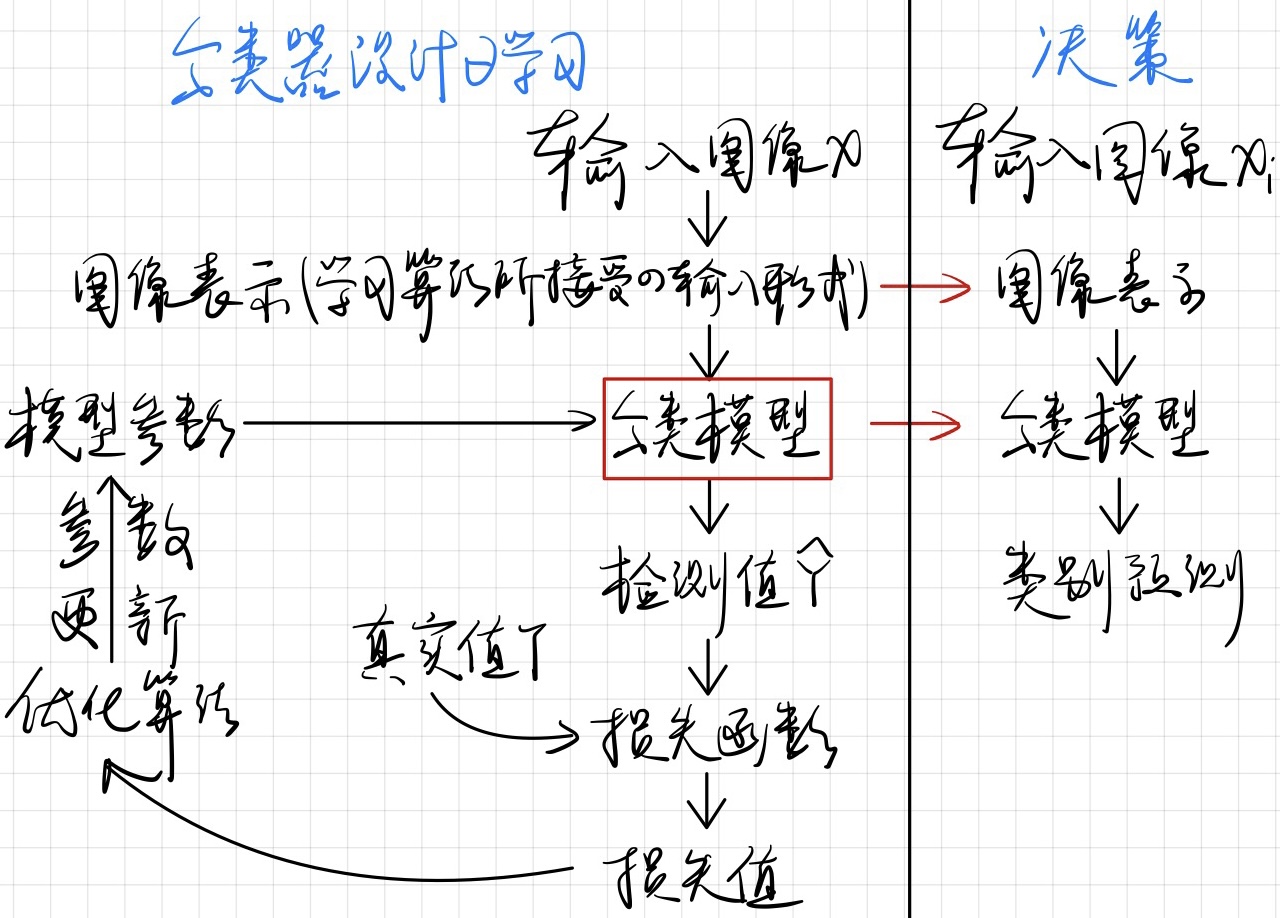 分类器设计与学习
输入图像X
图像表示(学习算法所接受の输入形式)
模型参数
分类模型
参数
更新
检测值Ŷ
真实值Y
优化算法
损失函数
损失值
决策
输入图像Xi
图像表示
分类模型
类别预测